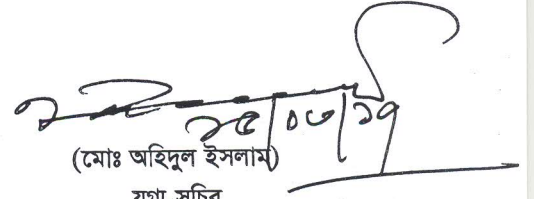 ২৫/০৩/২১
(মোঃ অহিদুল ইসলাম)
যুগ্ম সচিব